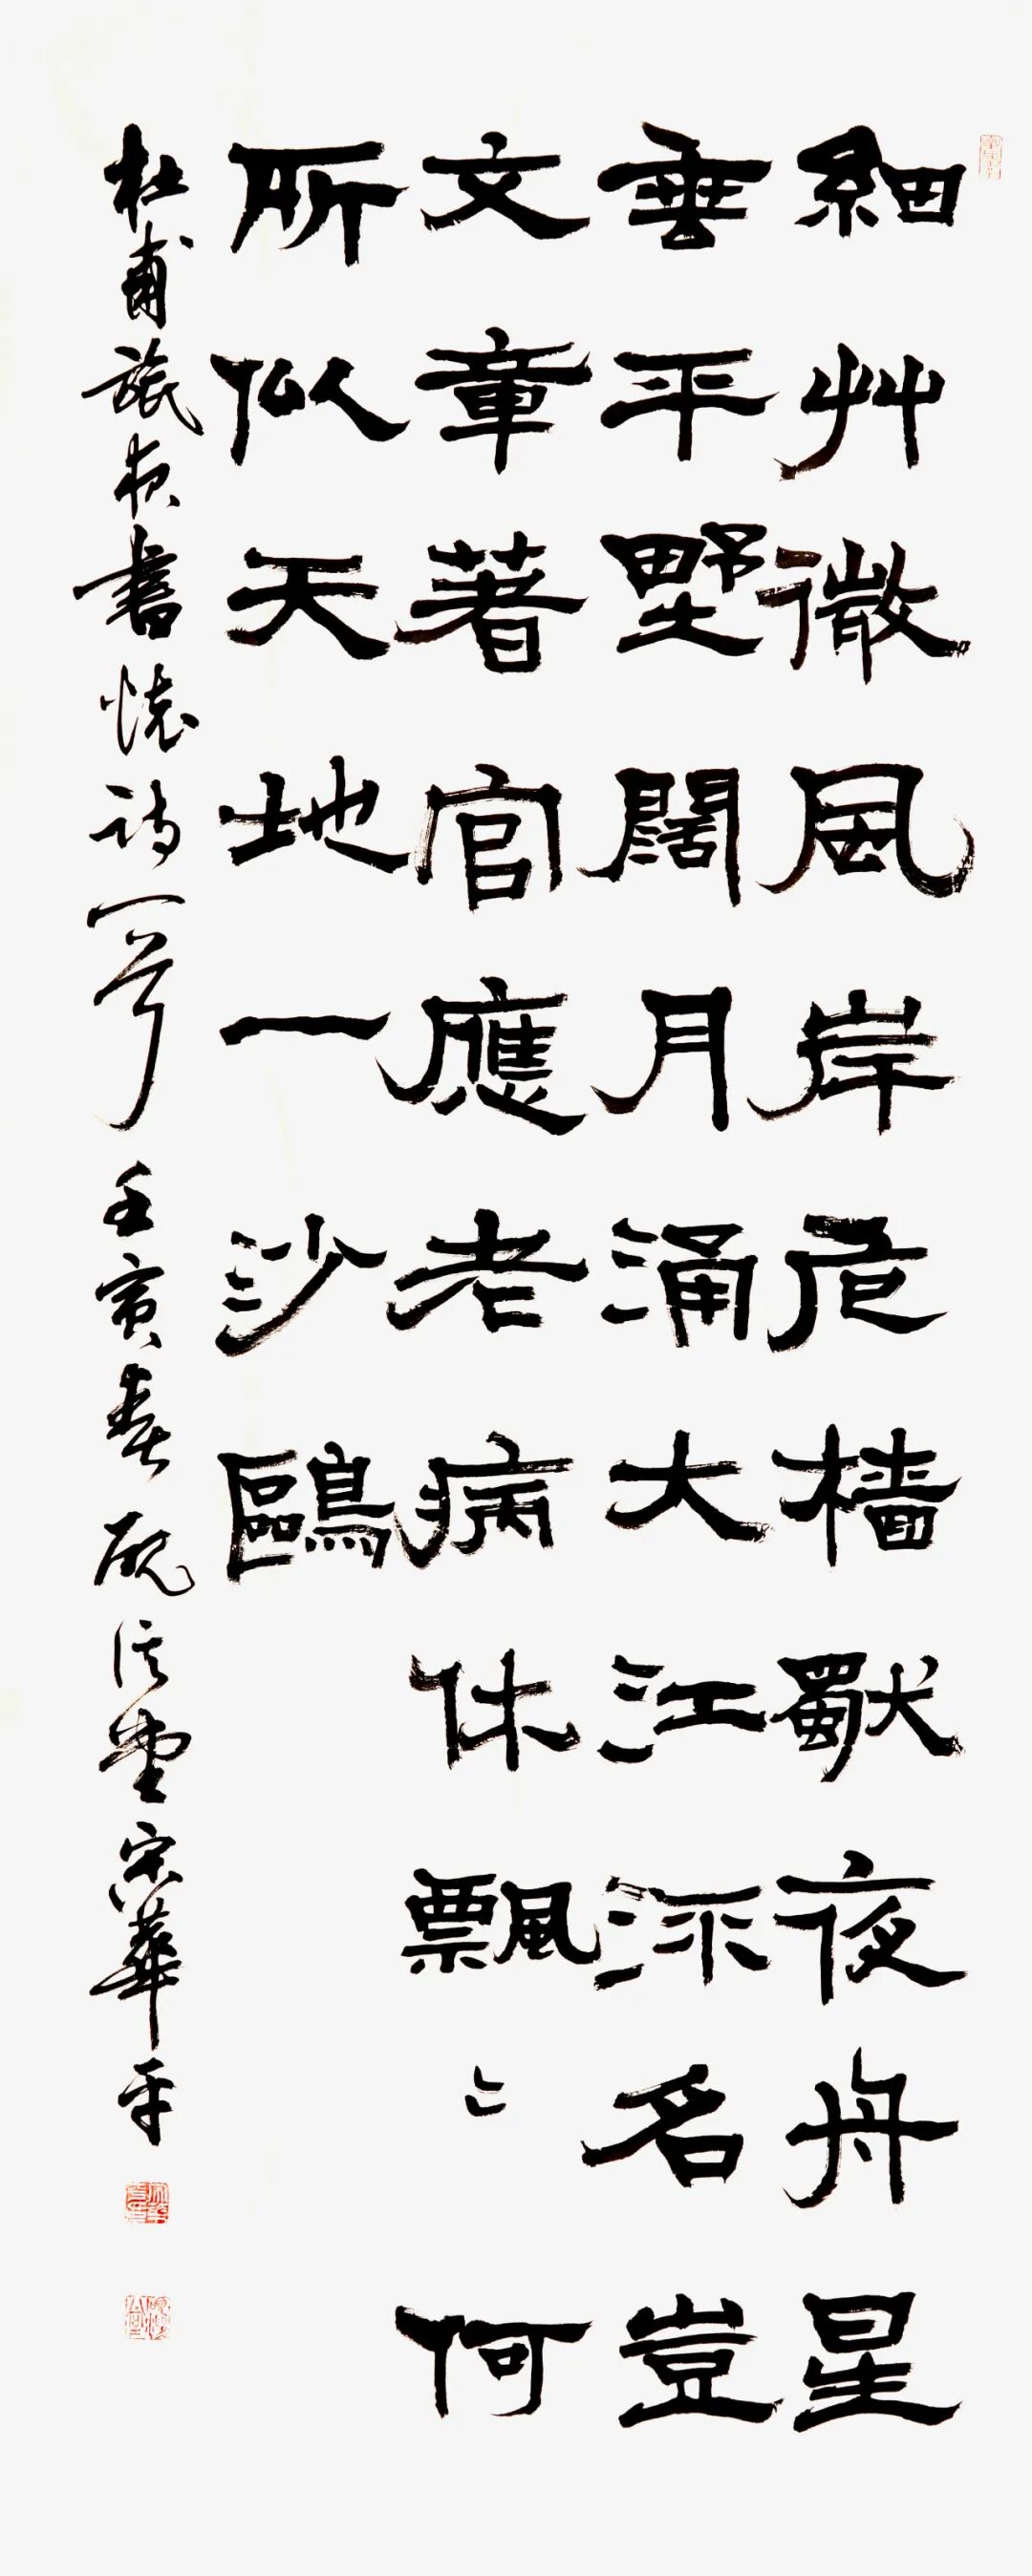 細艸微風岸危檣獨夜舟星
垂平野闊月涌大江流名豈
文章著官應老病休飄〻何
所似天地一沙鷗
杜甫旅夜書懷詩一首壬寅春信堂宋華平